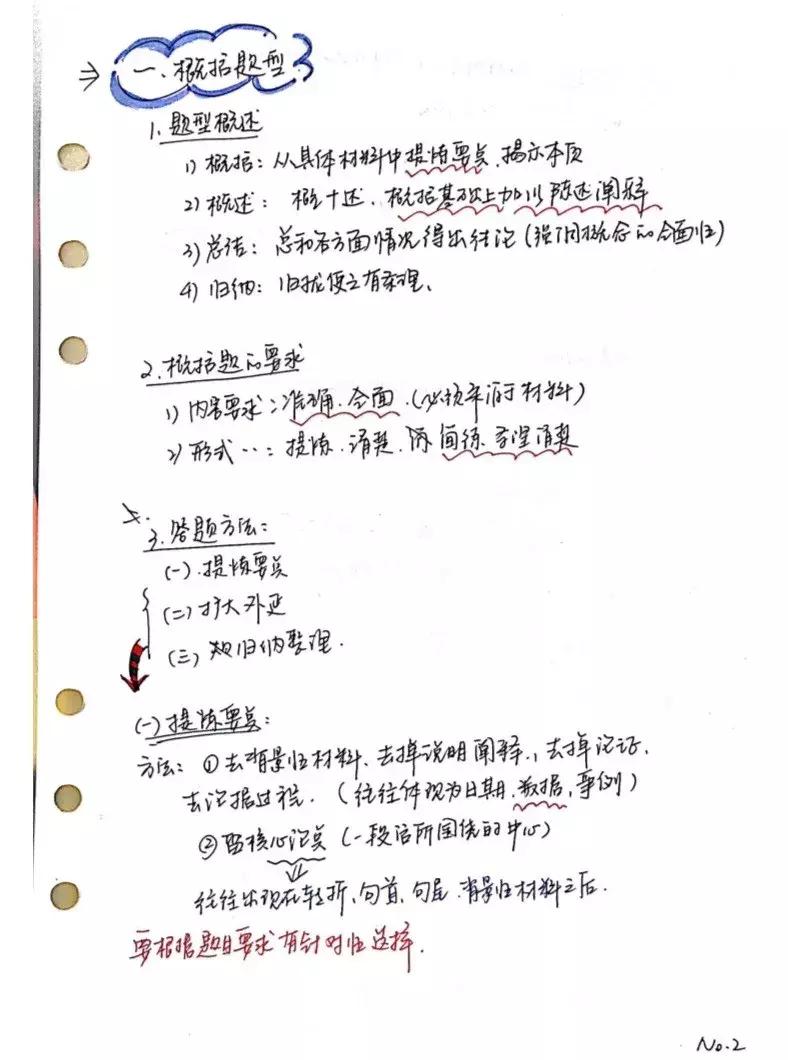 ⇒ 一、概括题型
1. 题型概述
1) 概括：从具体材料中提炼要点、揭示本质
2) 概述：概+述、概括基础上加以陈述阐释
3) 总结：总和各方面情况得出结论（强调概念的全面性）
4) 归纳：归拢使之有条理、
2. 概括题的要求
1) 内容要求：准确、全面、(必须来源于材料)
2) 形式…：提炼、清楚、简练、条理清楚
3. 答题方法：
(一) 提炼要点
(二) 扩大外延
(三) 归纳整理.
(一) 提炼要点：
方法：①去背景性材料、去掉说明阐释、去掉论证、
去论据过程. (往往体现为日期、数据、事例)
②留核心论点 (一段话所围绕的中心)
⇓
往往出现在转折、句首、句尾、背景性材料之后.
要根据题目要求有针对性选择.
No.2